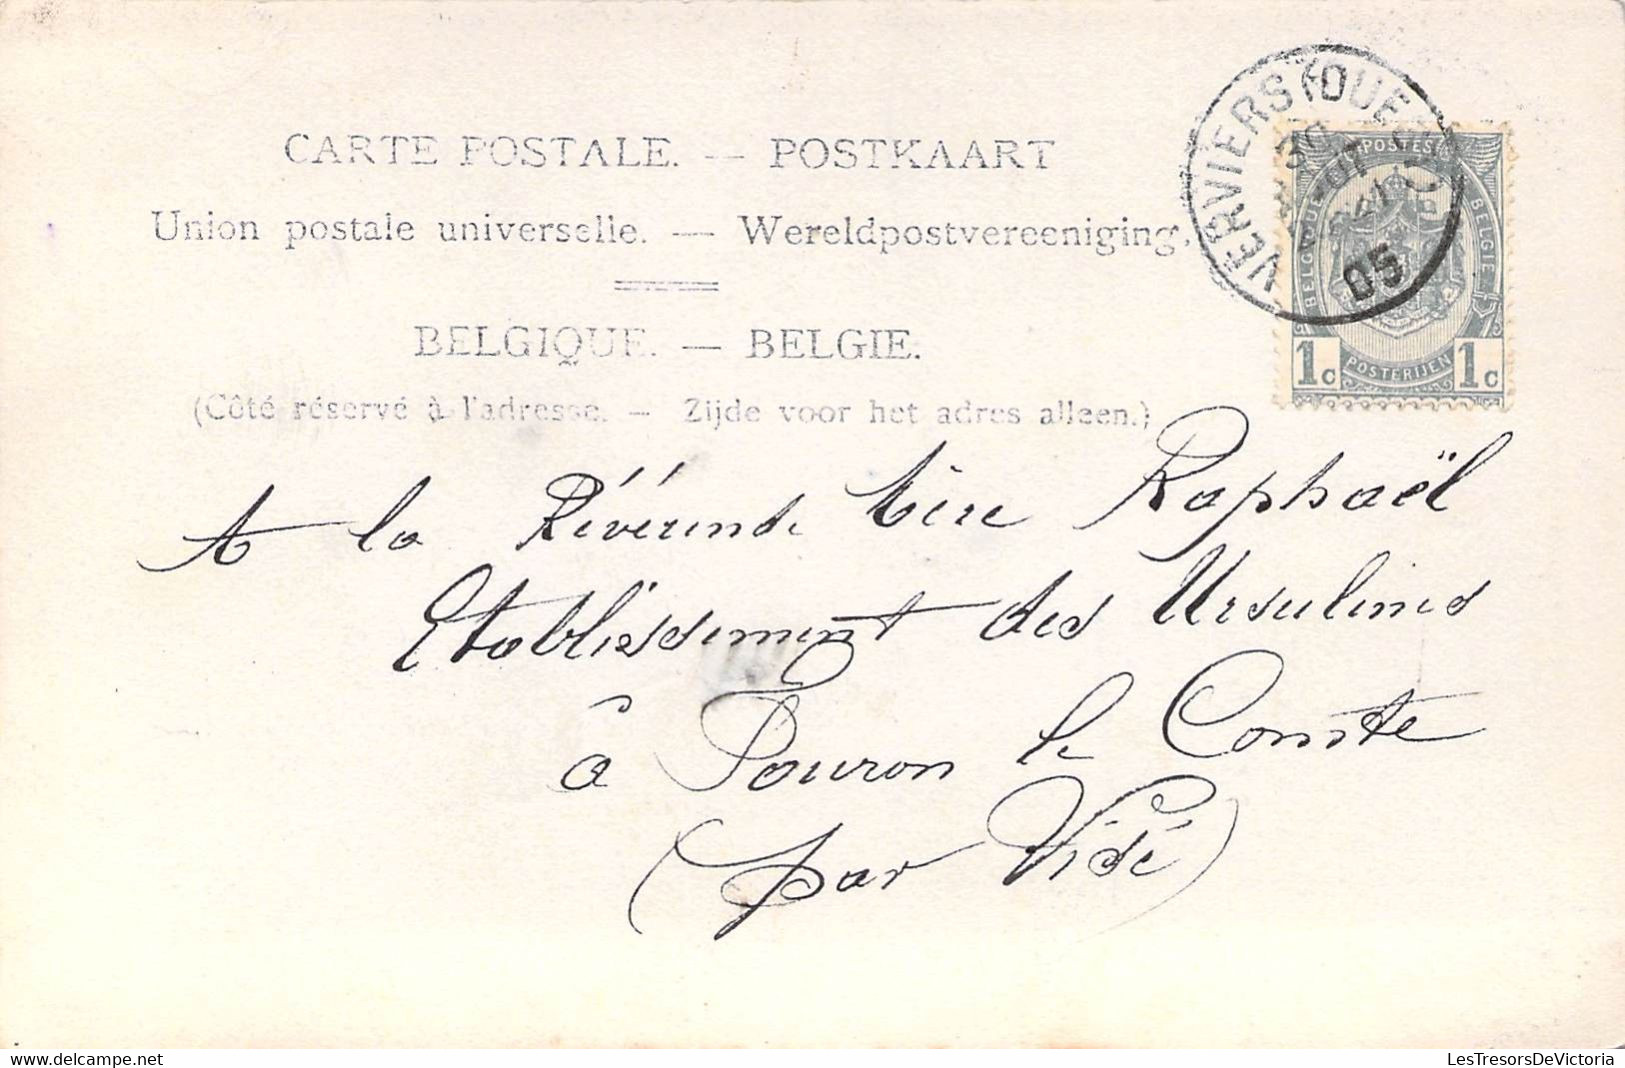 CARTE POSTALE. — POSTKAART
Union postale universelle. — Wereldpostvereeniging.
BELGIQUE. — BELGIE.
(Côté réservé à l'adresse. — Zijde voor het adres alleen.)
VERVIERS (OUEST)
30
AOUT
05
POSTES
BELGIQUE
BELGIE
1c
POSTERIJEN
1c
A la Révérende Mère Raphaël
Etablissement des Ursulines
à Fouron le Comte
(par Visé)
LesTresorsDeVictoria